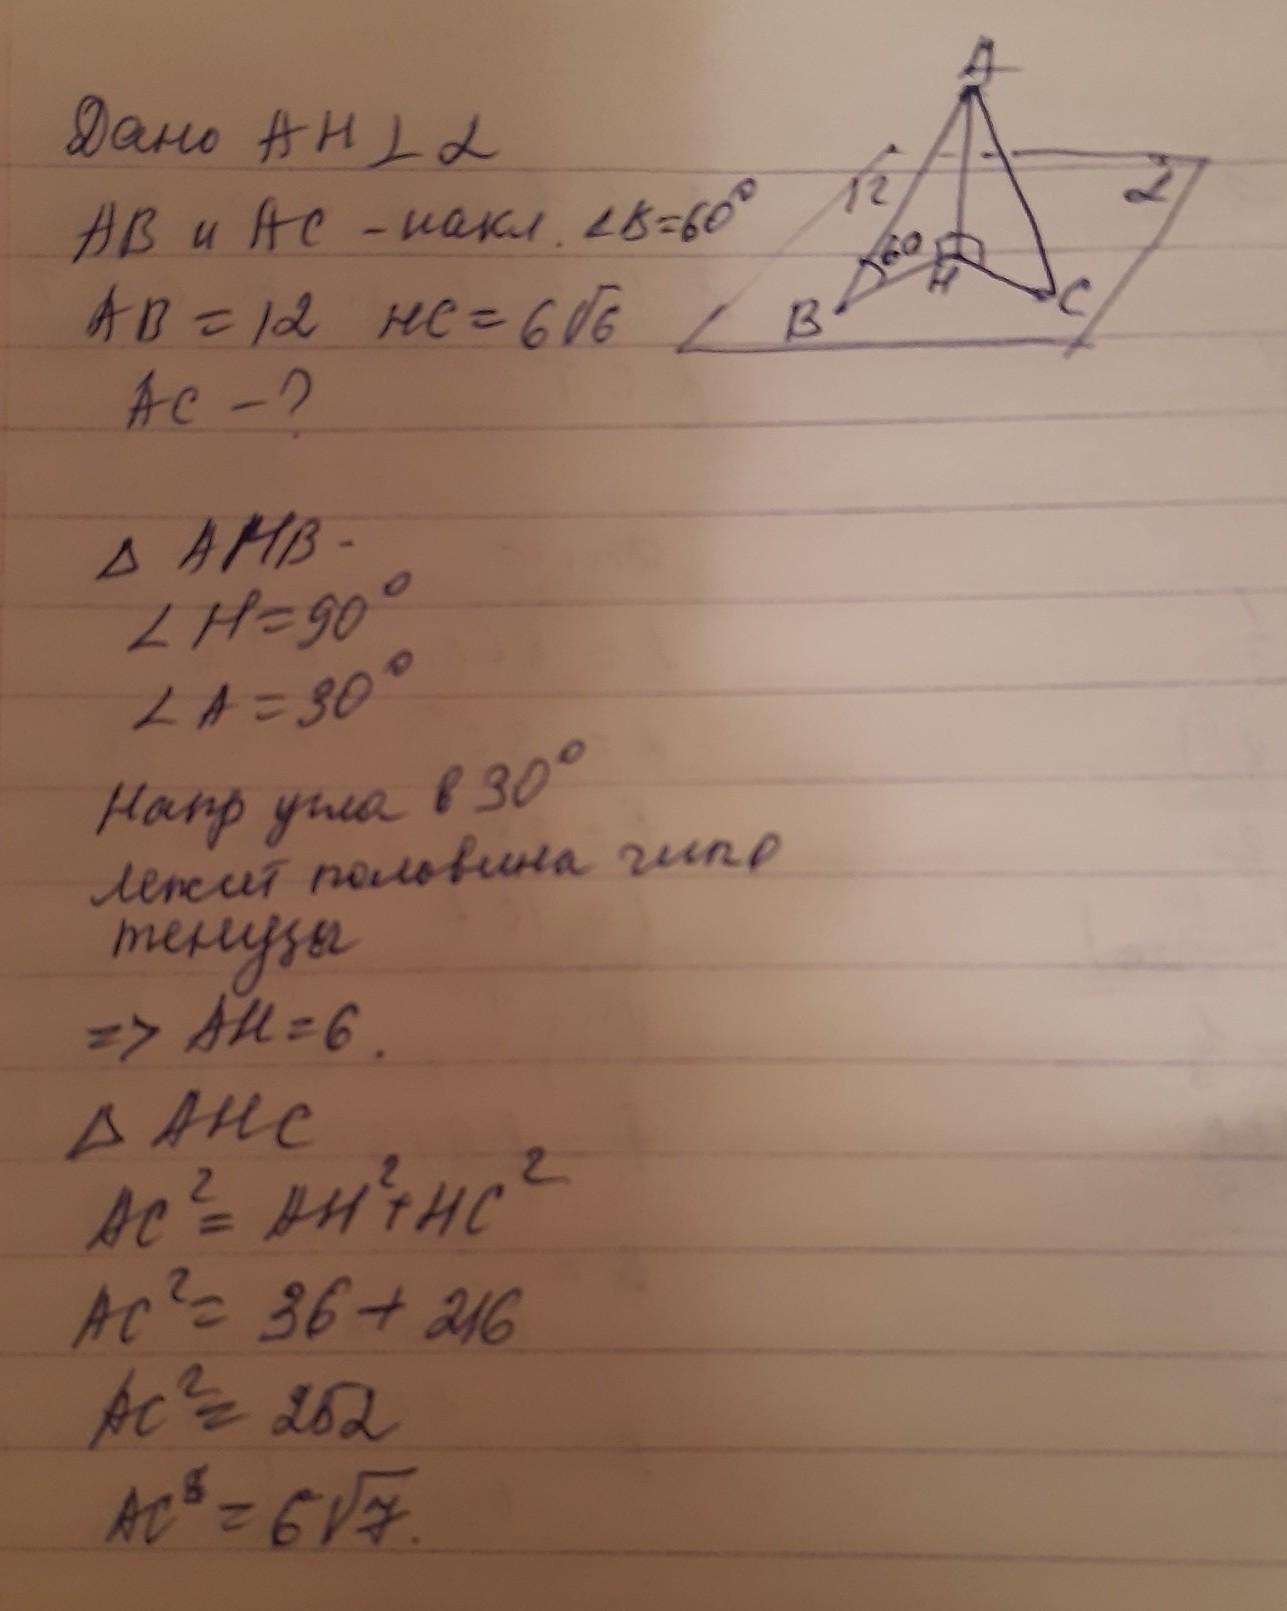 Дано AH ⊥ α
AB и AC - накл. ∠B=60°
AB = 12 HC = 6√6
AC - ?
A
12
α
60
H
B
C
Δ AHB -
∠ H = 90°
∠ A = 30°
Напр угла в 30°
лежит половина гипо
тенузы
=> AH = 6.
Δ AHC
AC² = AH² + HC²
AC² = 36 + 216
AC² = 252
AC = 6√7.